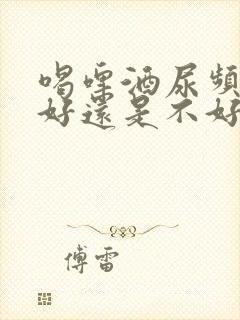 喝啤酒尿頻
好還是不好
傅雷